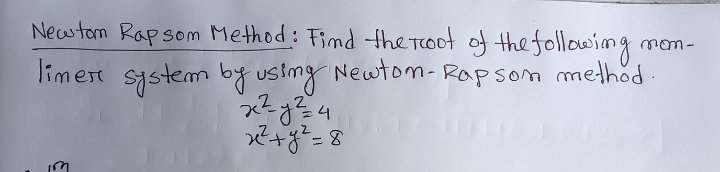 Newton Rapsom Method: Find the root of the following non-
liner system by using Newton-Rapson method.
x²-y²=4
x²+y²=8